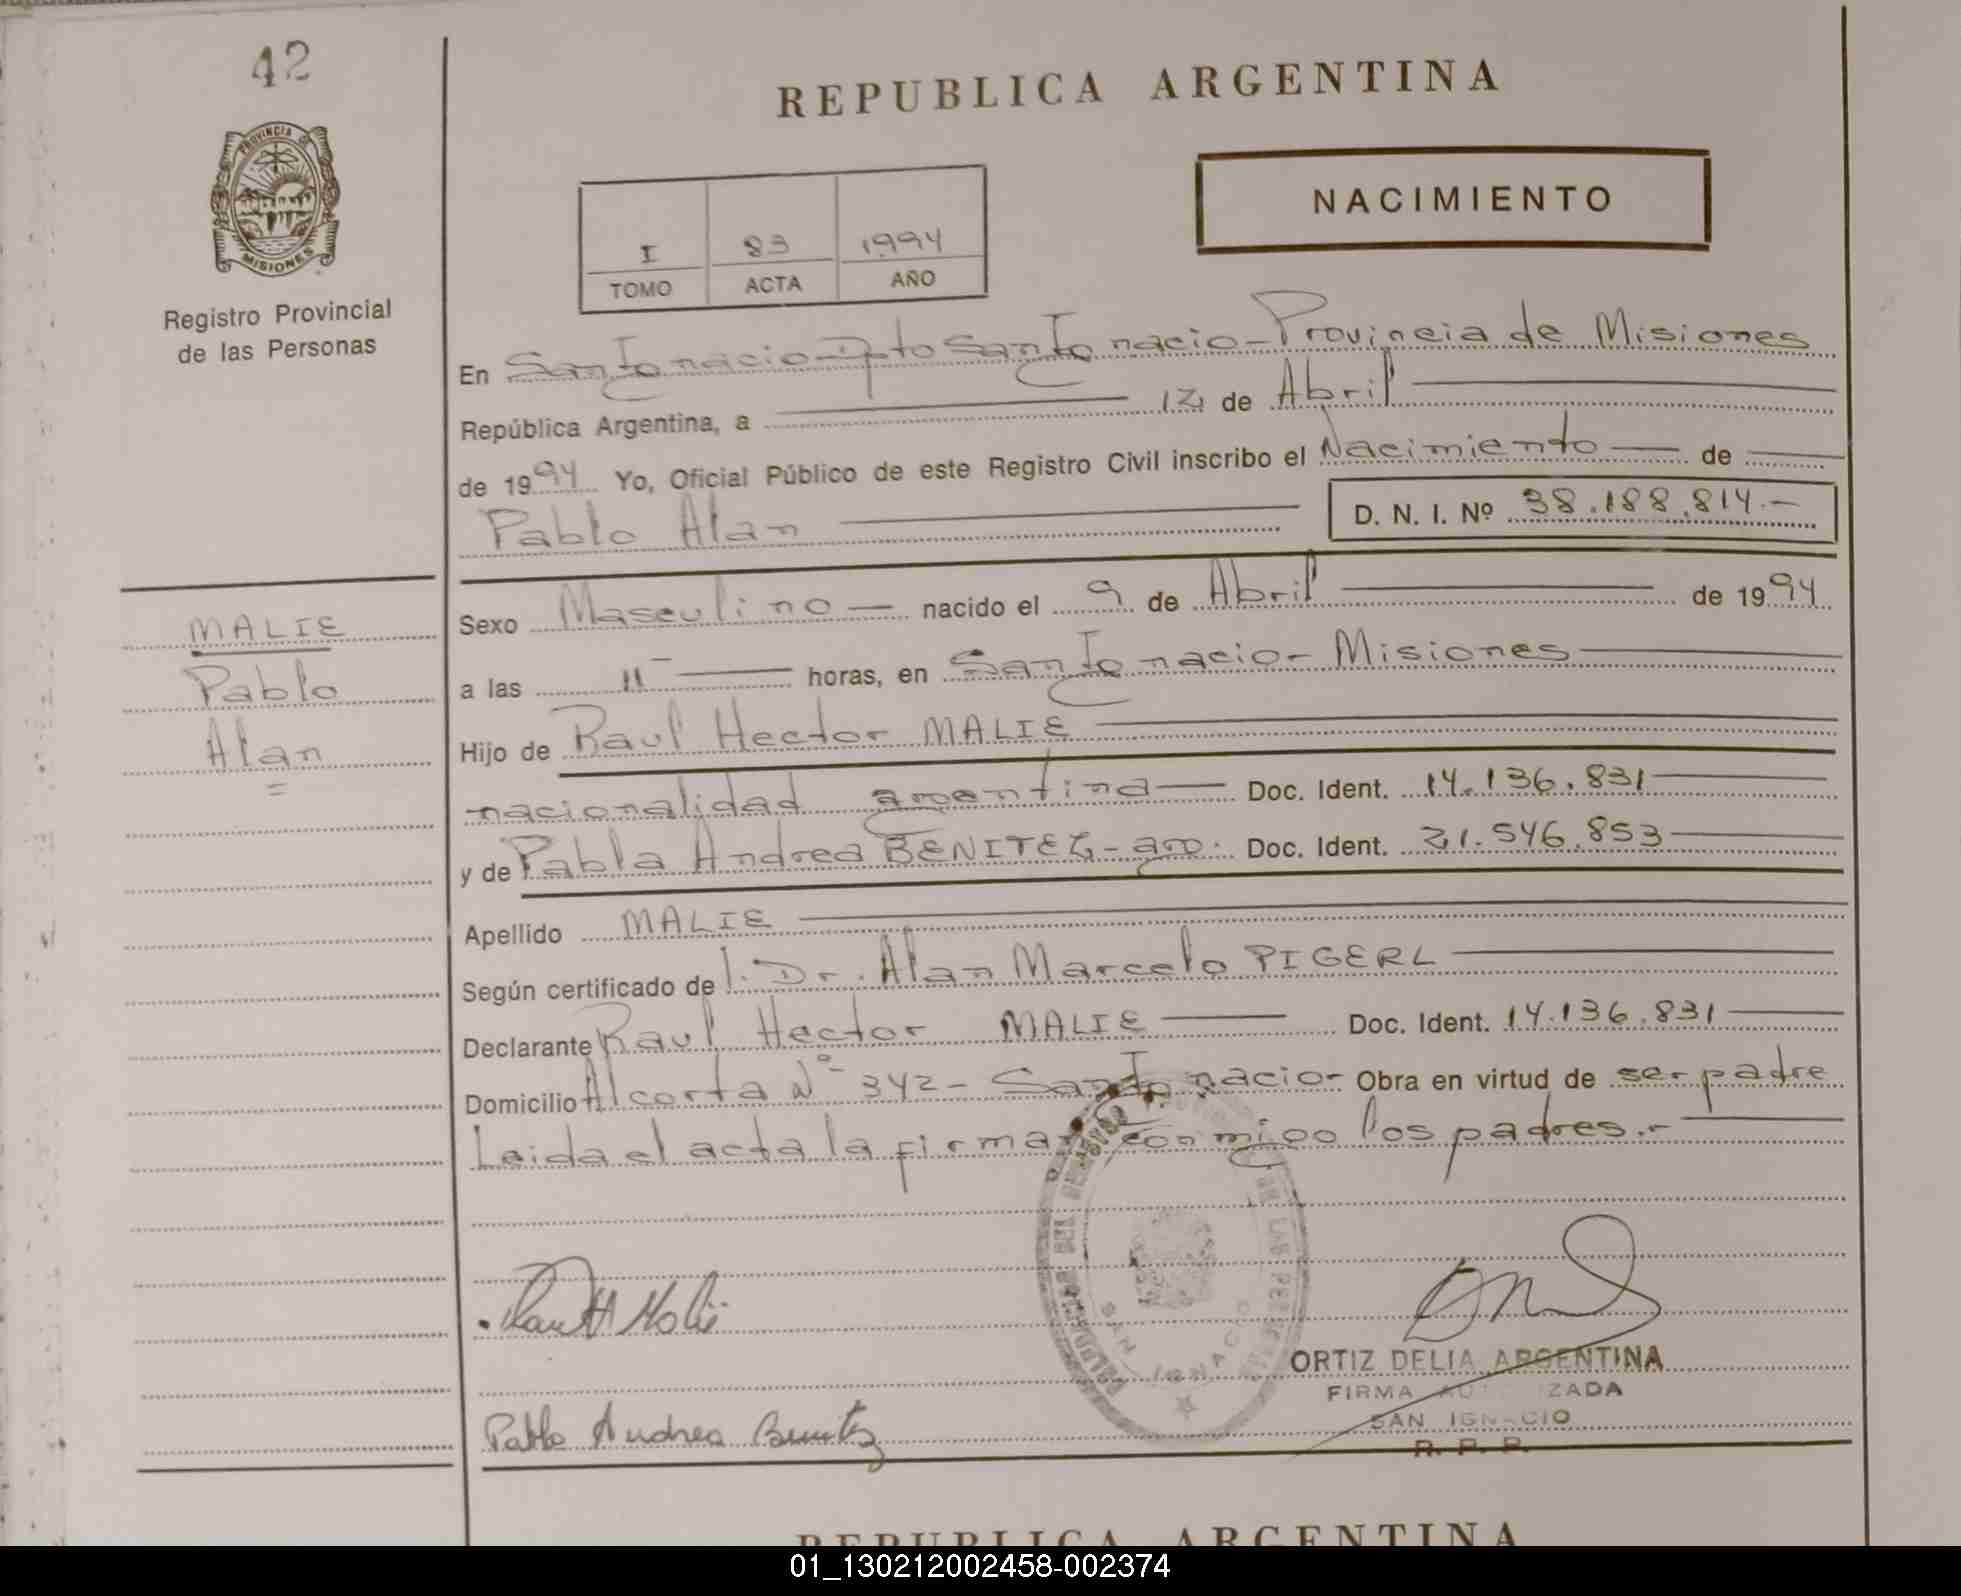 42
REPUBLICA ARGENTINA
PROVINCIA DE
MISIONES
Registro Provincial
de las Personas
I 83 1994
TOMO ACTA AÑO
NACIMIENTO
En San Ignacio - Dpto San Ignacio - Provincia de Misiones
República Argentina, a 12 de Abril
de 1994 Yo, Oficial Público de este Registro Civil inscribo el Nacimiento de
Pablo Alan D. N. I. Nº 38.188.814.-
MALIE
Pablo
Alan
Sexo Masculino nacido el 9 de Abril de 1994
a las 11 horas, en San Ignacio - Misiones
Hijo de Raul Hector MALIE
nacionalidad argentina Doc. Ident. 14.136.831
y de Pabla Andrea BENITEZ - arg. Doc. Ident. 21.546.853
Apellido MALIE
Según certificado de l. Dr. Alan Marcelo PIGERL
Declarante Raul Hector MALIE Doc. Ident. 14.136.831
Domicilio Alcorta Nº 342 - San Ignacio - Obra en virtud de ser padre
Leida el acta la firman conmigo los padres.-
SAN IGNACIO
Raul H Malié
ORTIZ DELIA ARGENTINA
FIRMA AUTORIZADA
SAN IGNACIO
R. P. P.
Pabla Andrea Benitez
REPUBLICA ARGENTINA
01_130212002458-002374